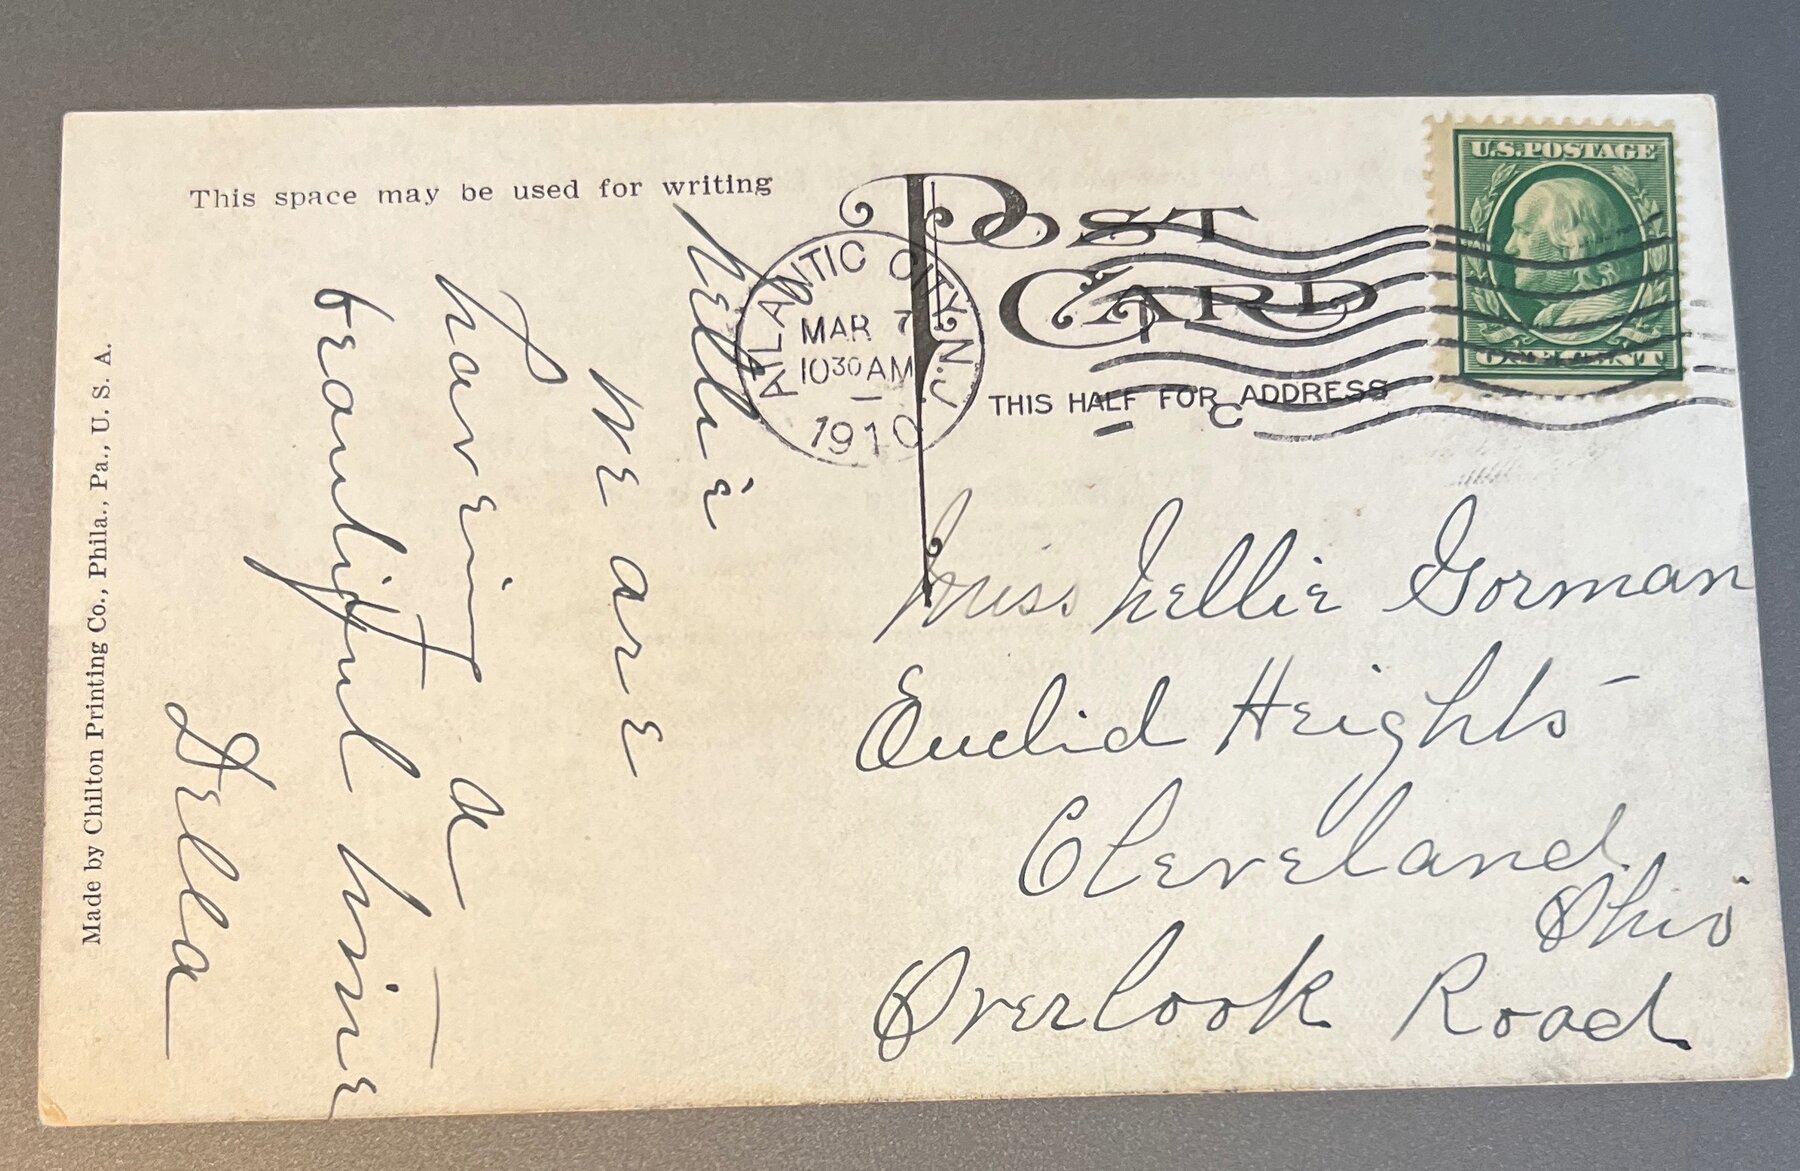 This space may be used for writing
POST CARD
THIS HALF FOR ADDRESS
U.S. POSTAGE
ONE CENT
ATLANTIC CITY, N.J.
MAR 7
10 30 AM
1910
C
Nellie
We are
having a
beautiful time
Della
Miss Nellie Gorman
Euclid Heights
Cleveland
Ohio
Overlook Road
Made by Chilton Printing Co., Phila., Pa., U. S. A.